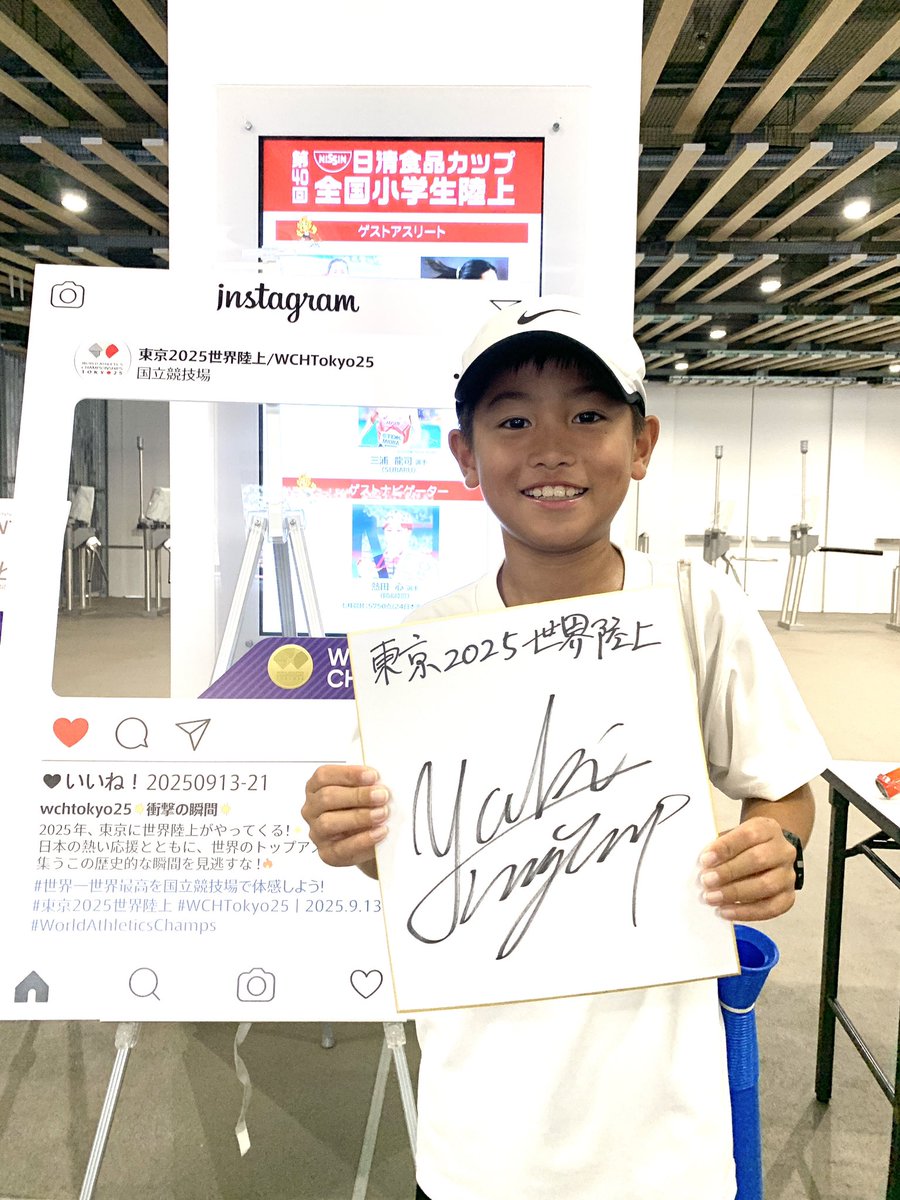 第40回
NISSIN
日清食品カップ
全国小学生陸上
ゲストアスリート
Instagram
東京2025世界陸上/WCHTokyo25
国立競技場
TOKYO25
三浦 龍司 選手
(SUBARU)
ゲストナビゲーター
W
CH
いいね！20250913-21
wchtokyo25 衝撃の瞬間
2025年、東京に世界陸上がやってくる！
日本の熱い応援とともに、世界のトップア
集うこの歴史的な瞬間を見逃すな！
#世界一世界最高を国立競技場で体感しよう!
#東京2025世界陸上 #WCHTokyo25 | 2025.9.13
#WorldAthleticsChamps
東京2025世界陸上
Yuki